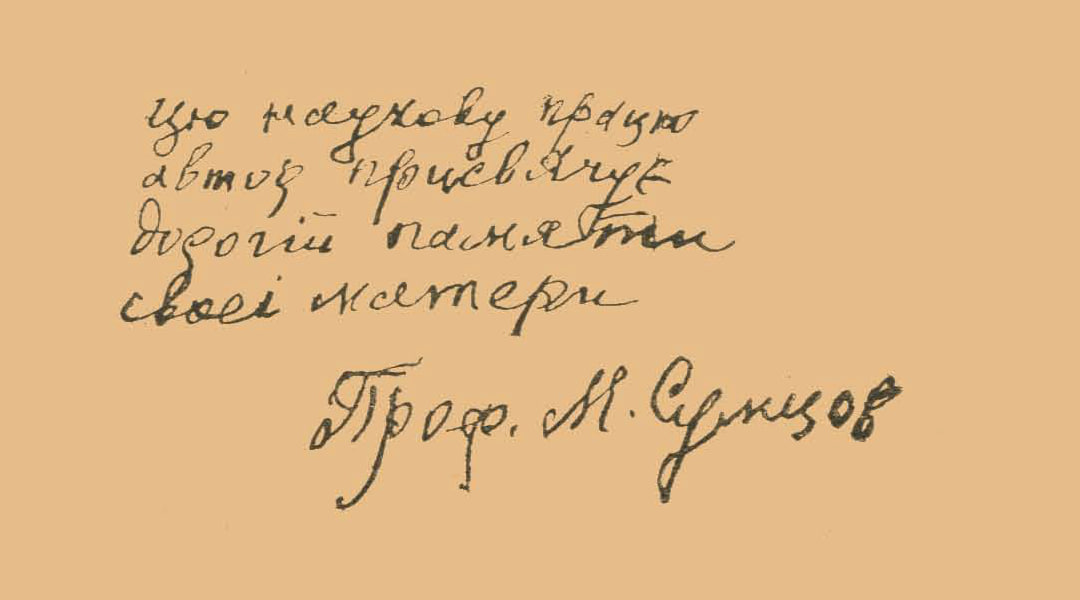 Цю наукову працю
автор присвячує
дорогій памяти
своєї матери
Проф. М. Сумцов